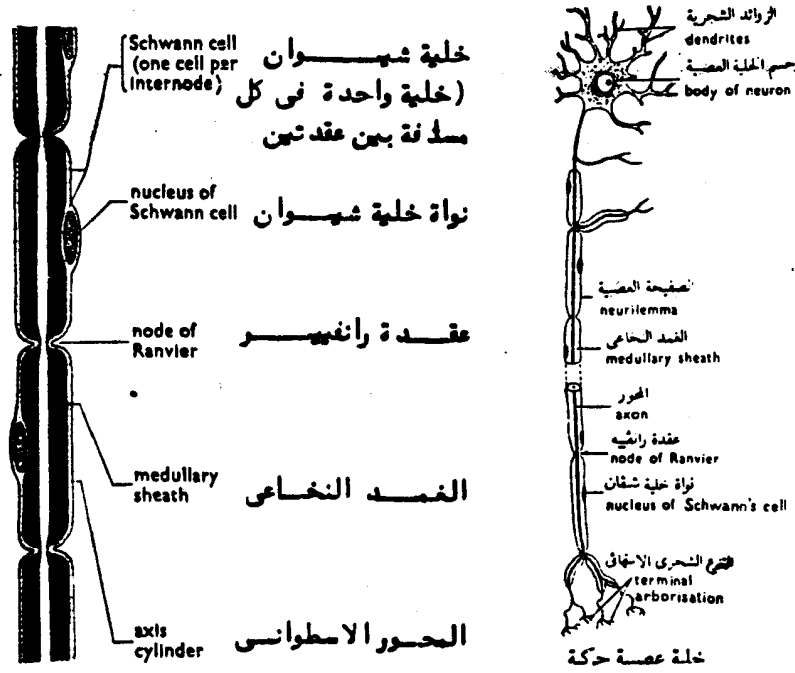 Schwann cell
(one cell per
internode)
خلية شيـــوان
(خلية واحدة فى كل
مسافة بين عقدتين
nucleus of
Schwann cell
نواة خلية شيـــوان
node of
Ranvier
عقـــدة رانفييـــر
medullary
sheath
الغمـــد النخـــاعى
axis
cylinder
المحـــور الاسطوانـــى
الزوائد الشجرية
dendrites
جسم الخلية العصبية
body of neuron
الصفيحة العصبية
neurilemma
الغمد النخاعي
medullary sheath
المحور
axon
عقدة رانڤييه
node of Ranvier
نواة خلية شڤان
nucleus of Schwann's cell
التفرع الشجري الانتهائي
terminal
arborisation
خلية عصبية حركية